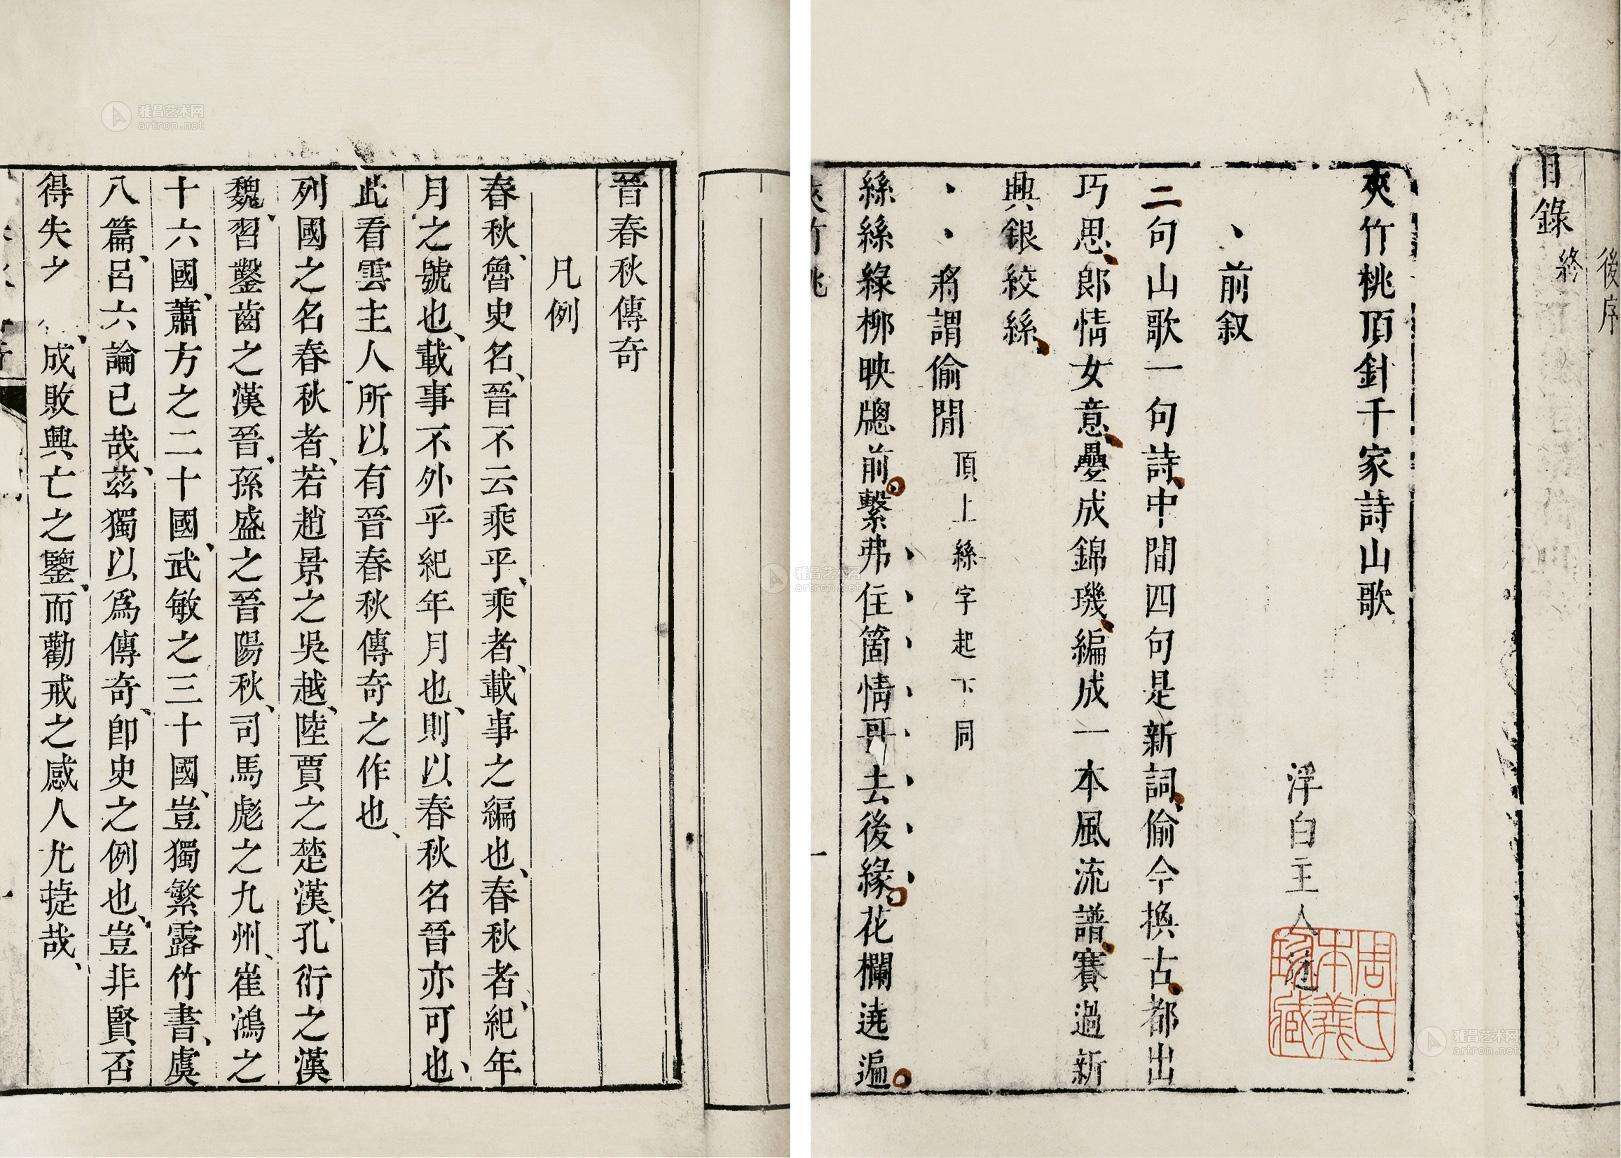 後序
目錄終
夾竹桃頂針千家詩山歌
浮白主人
周氏
本義
珍藏
前叙
二句山歌一句詩中間四句是新詞偷今換古都出
巧思郎情女意疊成錦璣編成一本風流譜賽過新
興銀絞絲
將謂偷閒頂上絲字起下同
絲絲綠柳映牕前繫弗住箇情哥去後緣花欄遶遍
夾竹桃
一
晉春秋傳奇
凡例
春秋、魯史名、晉不云乘乎、乘者、載事之編也、春秋者、紀年
月之號也、載事不外乎紀年月也、則以春秋名晉亦可也、
此看雲主人所以有晉春秋傳奇之作也、
列國之名春秋者、若趙景之吳越、陸賈之楚漢、孔衍之漢
魏、習鑿齒之漢晉、孫盛之晉陽秋、司馬彪之九州、崔鴻之
十六國、蕭方之二十國、武敏之三十國、豈獨繁露竹書、虞
八篇、呂六論已哉、茲獨以爲傳奇、卽史之例也、豈非賢否
得失之 成敗興亡之鑒、而勸戒之感人尤捷哉、
雅昌艺术网
artron.net
雅昌艺术网
artron.net
雅昌艺术网
artron.net